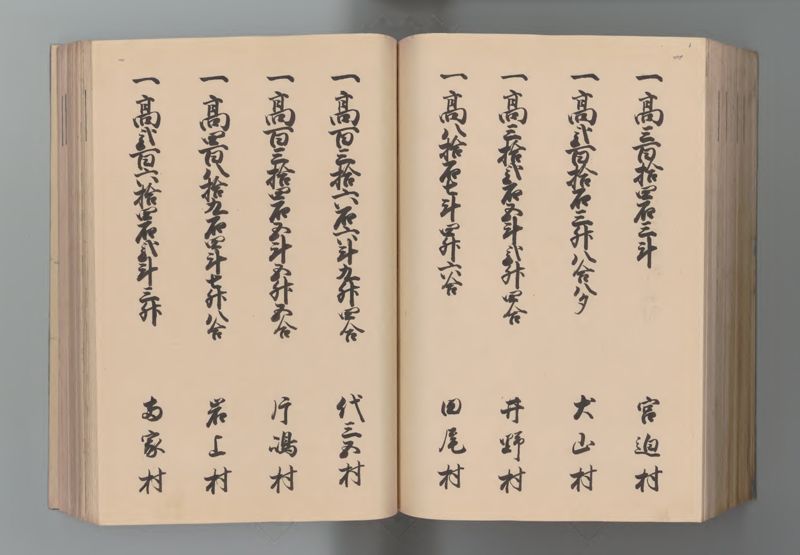 一高三百拾四石三斗 宮迫村
一高弐百拾石三升八合八夕 犬山村
一高三拾弐石五斗弐升四合 井野村
一高八拾石七斗四升六合 田尾村
一高百三拾六石六斗九升四合 代三五村
一高百三拾四石五斗五升五合 片嶋村
一高四百八拾九石四斗七升八合 岩上村
一高弐百六拾四石弐斗三升 家村